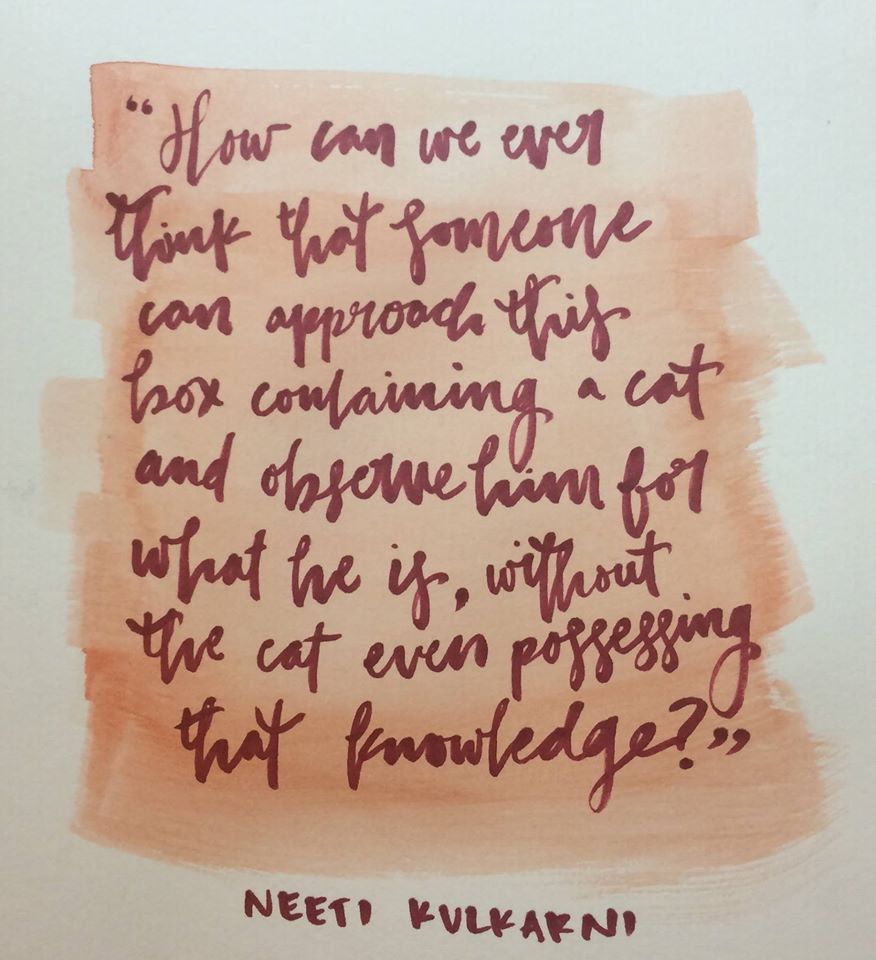 “How can we ever
think that someone
can approach this
box containing a cat
and observe him for
what he is, without
the cat even possessing
that knowledge?”
NEETI KULKARNI